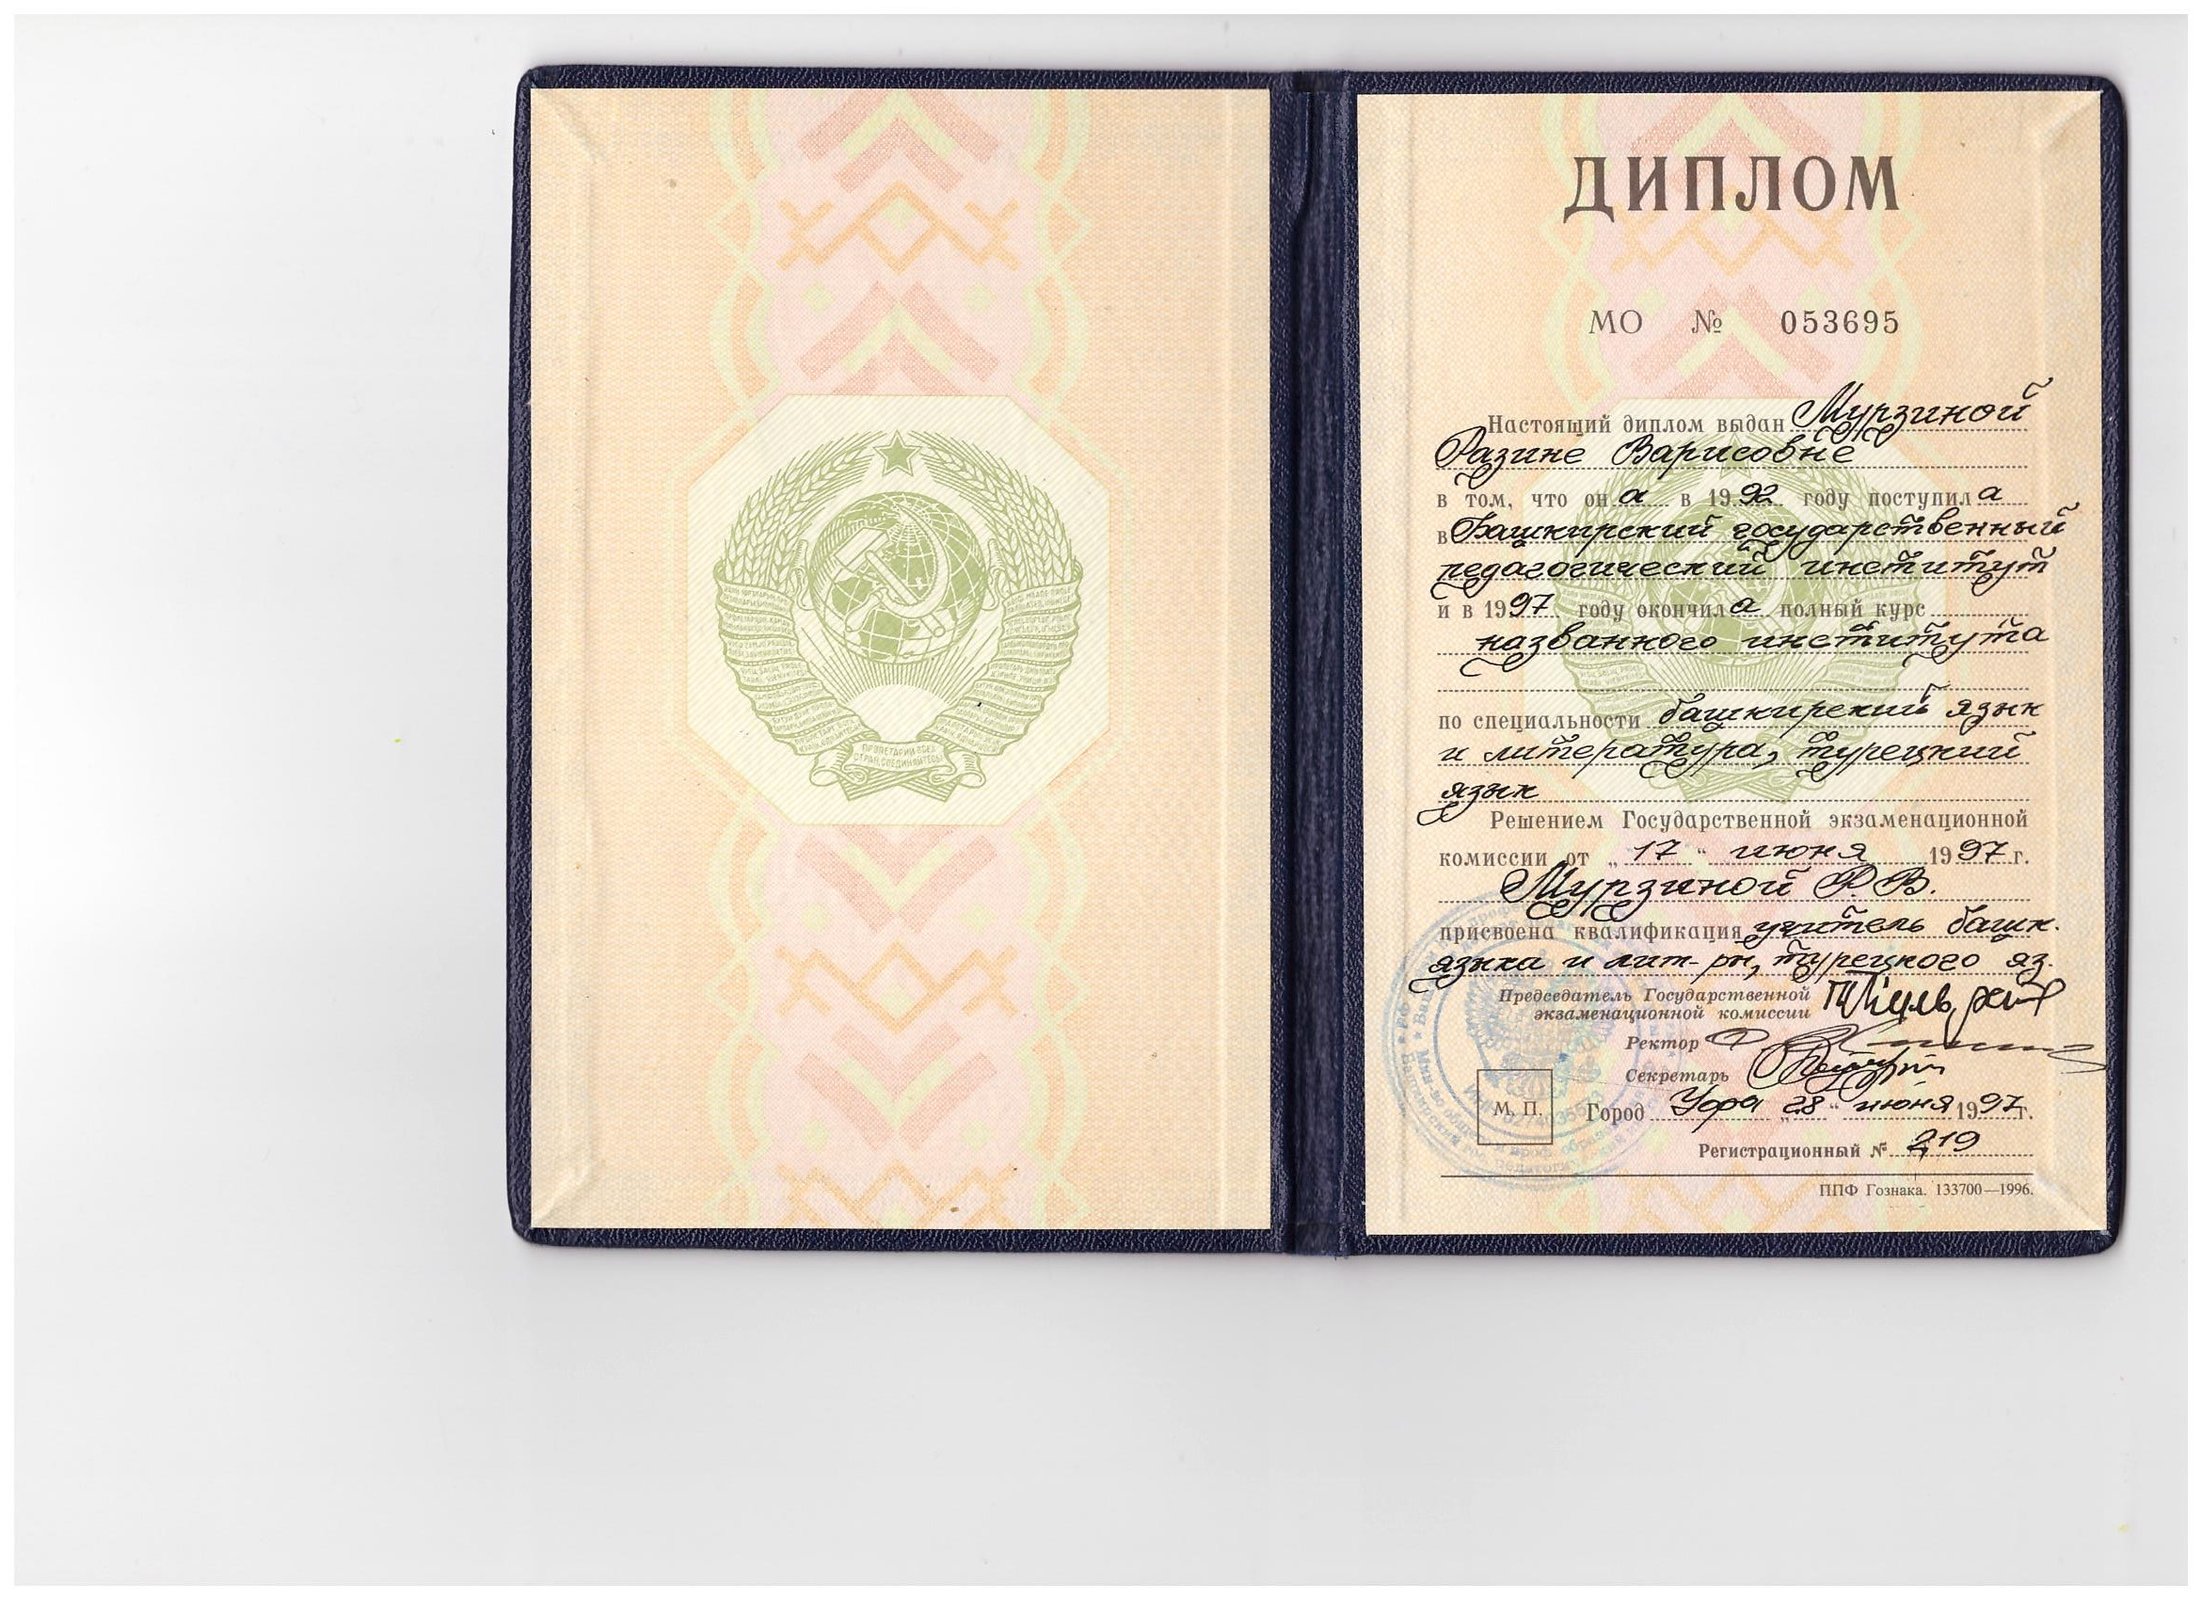 ПРОЛЕТАРИИ ВСЕХ
СТРАН, СОЕДИНЯЙТЕСЬ!
ДИПЛОМ
МО № 053695
Настоящий диплом выдан Мурзиной
Разине Варисовне
в том, что он а в 1992 году поступил а
в Башкирский государственный
педагогический институт
и в 1997 году окончил а полный курс
названного института
по специальности башкирский язык
и литература, турецкий
язык
Решением Государственной экзаменационной
комиссии от „17“ июня 1997 г.
Мурзиной Р. В.
присвоена квалификация учитель башк.
языка и лит-ры, турецкого яз.
Председатель Государственной
экзаменационной комиссии
Ректор
Секретарь
М. П. Город Уфа „28“ июня 1997 г.
Регистрационный № 219
ППФ Гознака. 133700—1996.